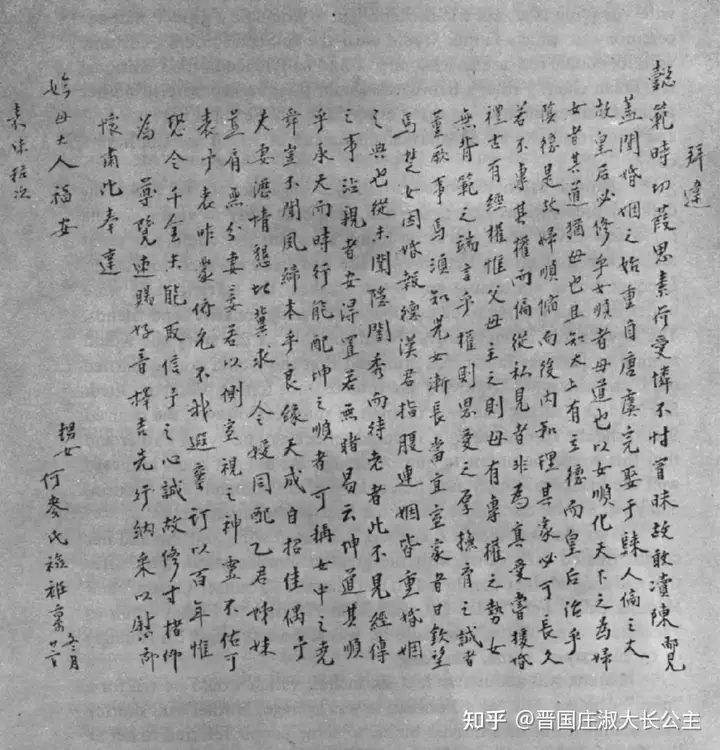 拜違
懿範時切葭思素荷受憐不忖冒昧故敢瀆陳鄙見
蓋聞婚姻之始重自唐虞完娶乎縣人倫之大
故皇后必修乎女順者母道也以女順化天下之為婦
女者其道猶母也且知太上有主德而皇后治乎
陰德是故婦順備而後內和理其家必可長久
若不專其權而偏從私見者非為真愛嘗援婚
禮古有經權惟父母主之則母有專權之勢女
無背範之端言乎權則思愛之厚撫育之誠者
董厥事焉須知兒女漸長當宜室家昔日欽望
馬楚女因婚報德漢君指腹連姻皆重婚姻
之典也從未聞隱閨秀而待老者此不見經傳
之事治親者安得置若無睹易云坤道其順
乎承天而時行能配坤之順者可稱女中之堯
舜豈不聞風締本乎良緣天成自招佳偶予
夫妻瀝情懇此冀求 令嫒同配乙君姊妹
並肩無分妻妾若以側室視之神靈不佑可
表予衷昨蒙俯允不我遐棄訂以百年惟
恐令千金未能取信予之心誠故修寸楮仰
為尊覽速賜好音擇吉先行納采以慰鄙
懷甫此奉達
妗母大人福安
甥女何麥氏襝衽稟
素妹粧次
知乎 @晋国庄淑大长公主